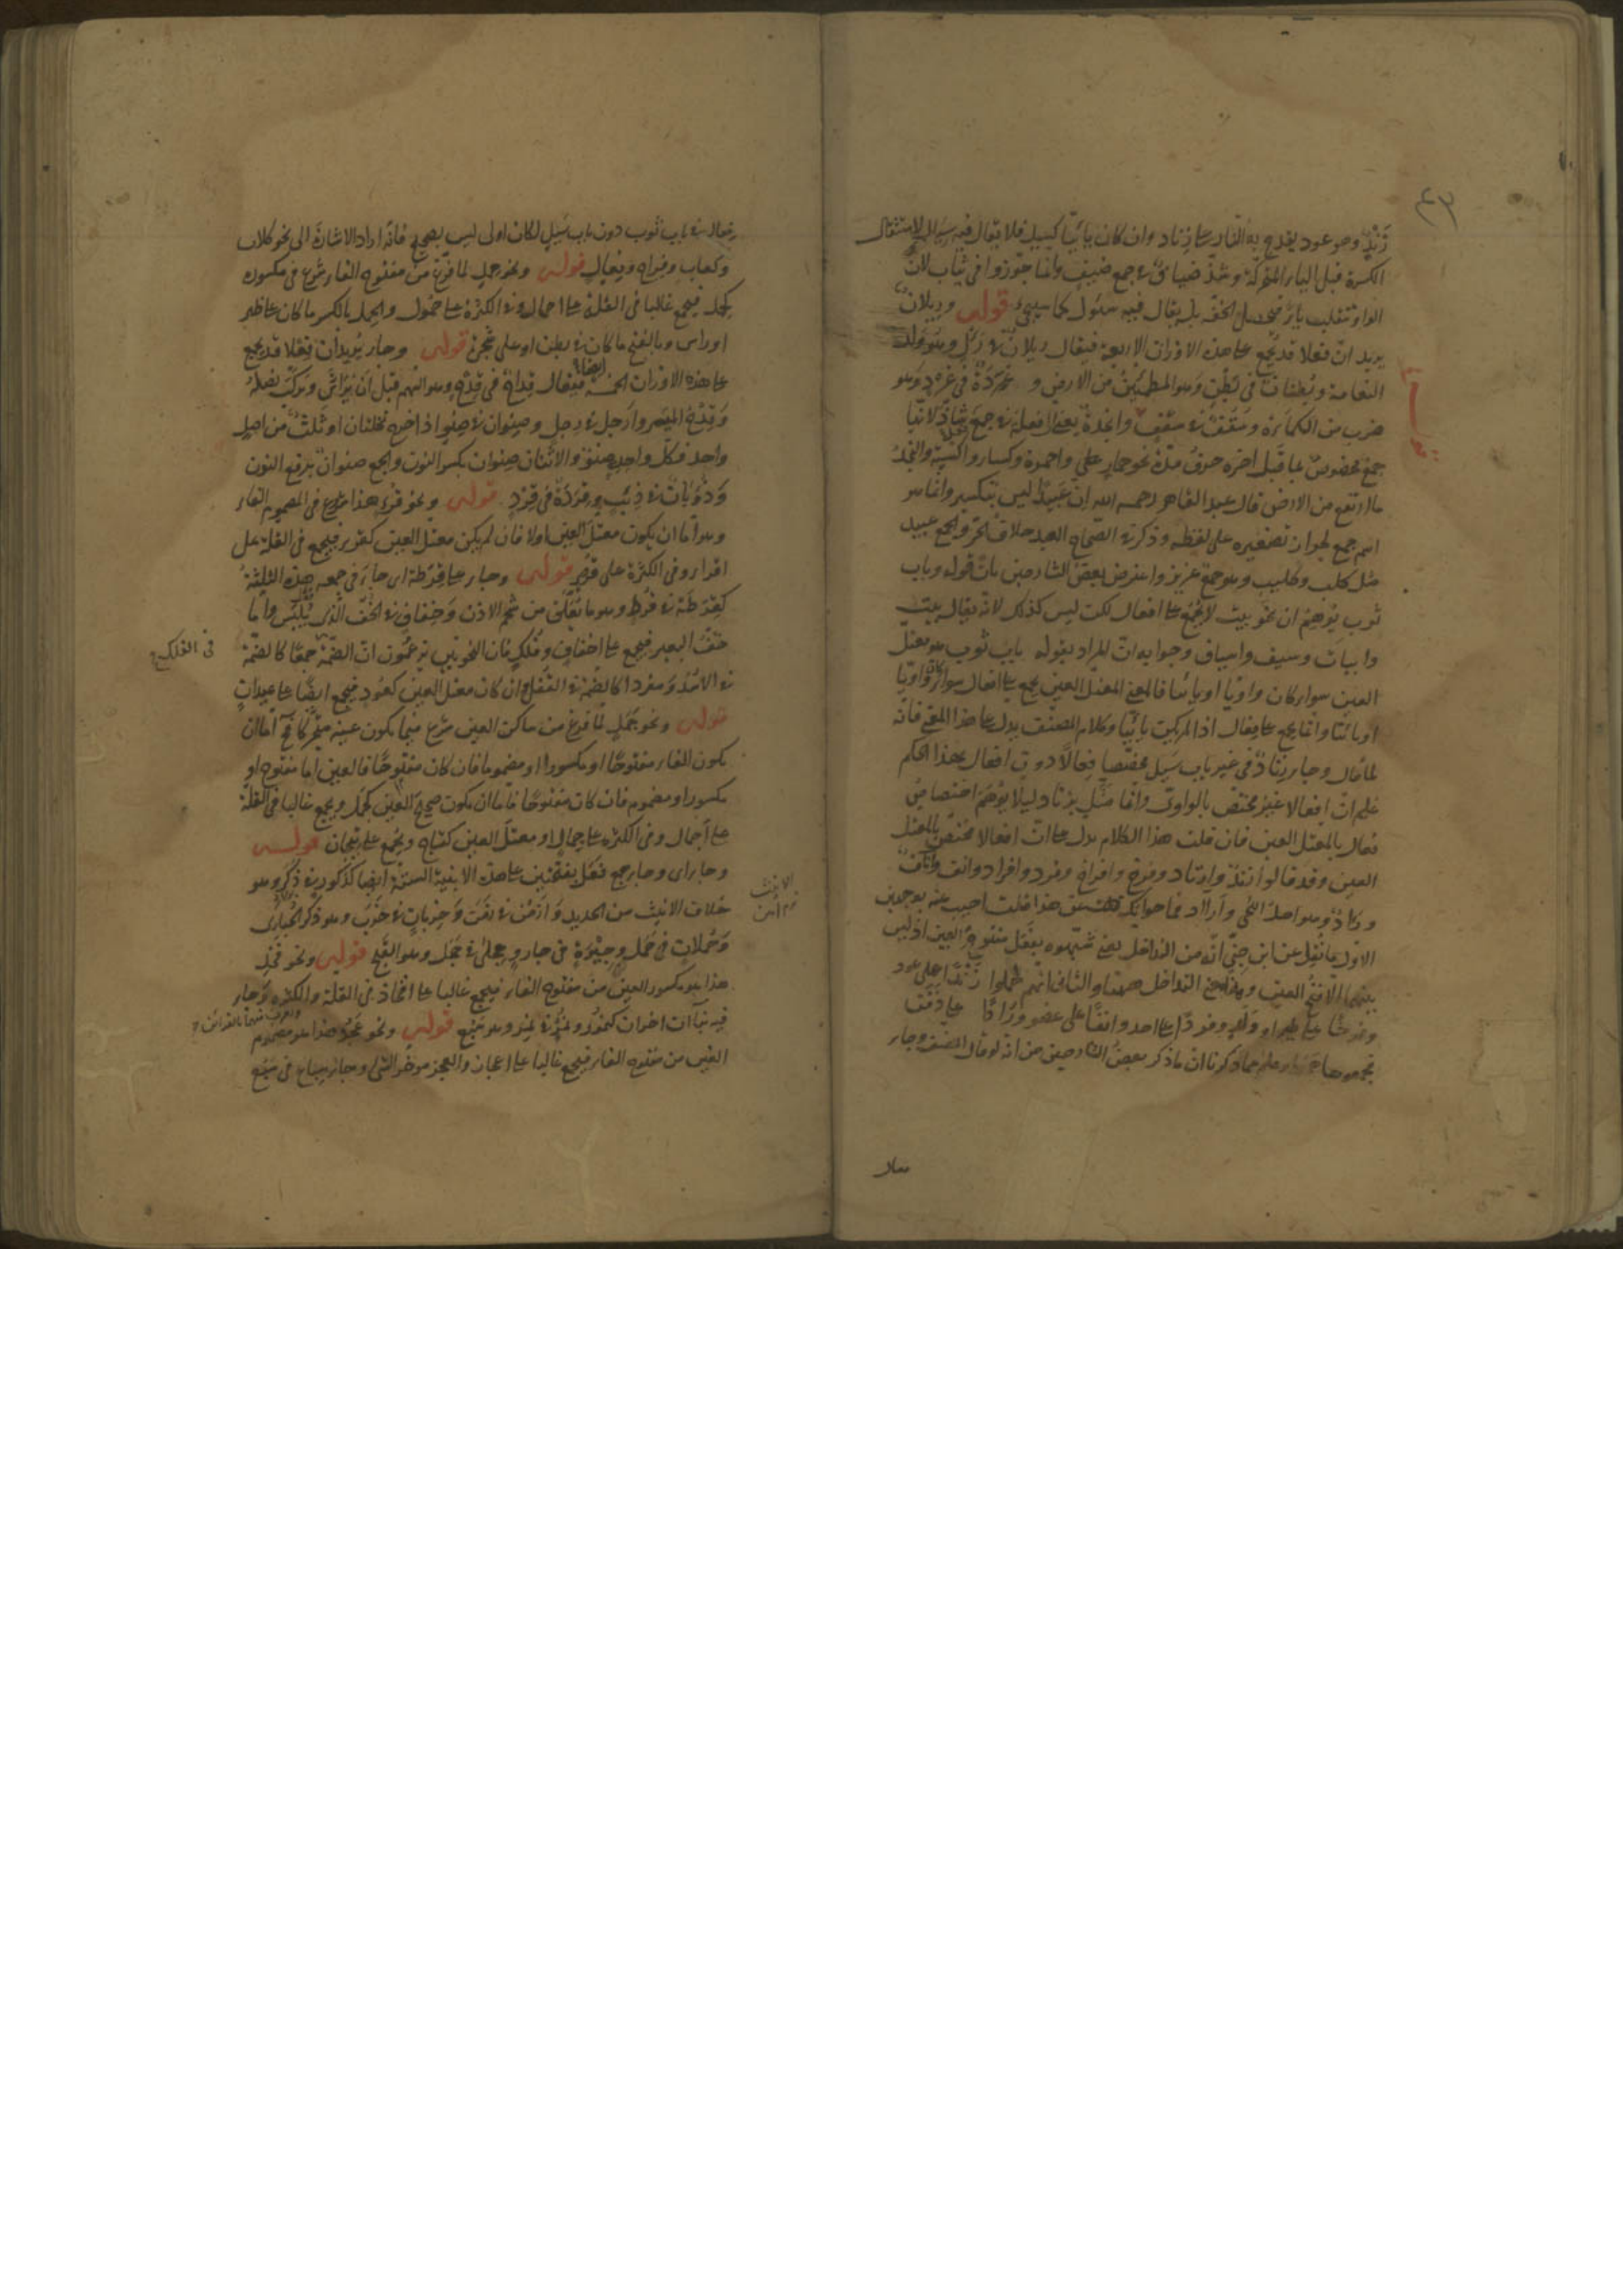 ٤٣
زَنْدٍ وهو عود يقدح به النار على زناد وان كان يائيا كسيل فلا يقال فيه سيال لاستثقال
الكسرة قبل الياء المتحركة وشذ ضياف في جمع ضيف وانما جوزوا في ثياب لان
الواو تنقلب ياء فيحصل الخفة بل يقال فيه سيول كما سيجيء قوله ورئلان
يريد ان فعلا قد يجمع على هذه الاوزان الاربعة فيقال رئلان في رأل وهو ولد
النعامة وبطنان في بطن وهو المطمئن من الارض و غردة في غرد وهو
ضرب من الكمأة وسقف في سقف وانجدة بمعنى افعلة في جمع نجد شاذ لانها
جمع مخصوص بما قبل اخره حرف مدة نحو حمار على واحمرة وكساء واكسية والنجد
ما ارتفع من الارض قال عبد القاهر رحمه الله ان عبيدا ليس بتكسير وانما هو
اسم جمع لجواز تصغيره على لفظه وذكر في الصحاح العبد خلاف الحر والجمع عبيد
مثل كلب وكليب وهو جمع عزيز واعترض بعض الشارحين بان قوله وباب
ثوب يوهم ان نحو بيت لا يجمع على افعال لكن ليس كذلك لانه يقال بيت
وابيات وسيف واسياف وجوابه ان المراد بقوله باب ثوب هو معتل
العين سواء كان واويا او يائيا فالمعنى المعتل العين يجمع على افعال سواء كان واويا
او يائيا وانما يجمع على فعال اذا لم يكن يائيا وكلام المصنف يدل على هذا المعنى فانه
لما قال وجاء زناد في غير باب سيل مختصا فعالا دون افعال بهذا الحكم
علم ان افعالا غير مختص بالواوي وانما مثل بزناد ليلا يوهم اختصاص
فعال بالمعتل العين فان قلت هذا الكلام يدل على ان افعالا مختص بالمعتل
العين وقد قالوا زند وازناد وفرخ وافراخ وفرد وافراد وانف وآناف
ورأد وهو اصل اللحى وأرآد فما جوابك قلت عن هذا قلت اجيب عنه بوجهين
الاول ما نقل عن ابن جني انه من التداخل يعني شبهوه بفعل مفتوح العين اذ ليس
بينهما الا فتح العين وهذا معنى التداخل ههنا والثاني انهم حملوا زندا على عود
وفرخا على طير او ولد وفردا على احد وانفا على عضو ورأدا على ذقن
فعال
فعال في باب ثوب دون باب سيل لكان اولى ليس بصحيح فانه اراد الاشارة الى نحو كلاب
وكعاب وفراخ وبغال قوله ونحو حمل لما فرغ من مفتوح الفاء شرع في مكسوره
كحمل فيجمع غالبا في القلة على احمال وفي الكثرة على حمول والحمل بالكسر ما كان على ظهر
او راس وبالفتح ما كان في بطن او على شجرة قوله وجاء يريد ان فعلا قد يجمع
على هذه الاوزان الخمسة ايضا فيقال قداح في قدح وهو السهم قبل ان يراش ويركب نصله
وقدح الميسر وارجل في رجل وصنوان في صنو اذا خرج نخلتان او ثلث من اصل
واحد فكل واحد صنو والاثنان صنوان بكسر النون والجمع صنوان برفع النون
وذؤبان في ذئب وقردة في قرد قوله ونحو قرء هذا شروع في المضموم الفاء
وهو اما ان يكون معتل العين اولا فان لم يكن معتل العين كقرء فيجمع في القلة على
اقراء وفي الكثرة على قروء قوله وجاء على قرطة اى جاء في جمعه هذه الثلثة
كقرطة في قرط وهو ما يعلق من شحم الاذن وخفاف في الخف الذي يلبس واما
خف البعير فيجمع على اخفاف وفلك فان النحويين يزعمون ان الضمة جمعا كالضمة
في الفلك
في الاسد ومفردا كالضمة في القفل وان كان معتل العين كعود فيجمع ايضا على عيدان
قوله ونحو جمل لما فرغ من ساكن العين شرع فيما يكون عينه متحركا فح اما ان
يكون الفاء مفتوحا او مكسورا او مضموما فان كان مفتوحا فالعين اما مفتوح او
مكسور او مضموم فان كان مفتوحا فاما ان يكون صحيح العين كجمل ويجمع غالبا في القلة
على اجمال وفي الكثرة على جمال او معتل العين كتاج ويجمع على تيجان قوله
وجاء اى وجاء جمع فعل بفتحتين على هذه الابنية الستة ايضا كذكور في ذكر وهو
خلاف الانيث من الحديد وازمن في زمن وخربان في خرب وهو ذكر الحبارى
وحملان في حمل وجيرة في جار وحجلى في حجل وهو القبج قوله ونحو فخذ
هذا هو مكسور العين من مفتوح الفاء فيجمع غالبا على افخاذ في القلة والكثرة وجاء
فيه بناان اخران كنمور ونمر في نمر وهو سبع قوله ونحو عجز هذا هو مضموم
العين من مفتوح الفاء فيجمع غالبا على اعجاز والعجز موخر الشي وجاء سباع في سبع